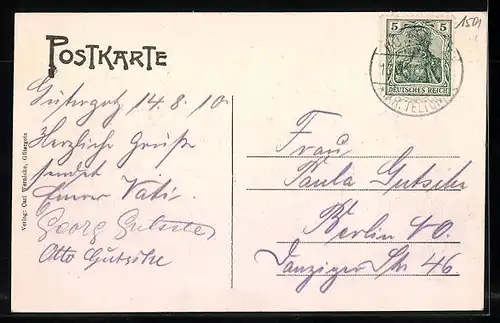 POSTKARTE
5 5
DEUTSCHES REICH
KR. TELTOW
1501
Gütergotz 14.8.10.
Herzliche Grüße
sendet
Eurer Vati.
Georg Gutsche
Otto Gutsche
Frau
Paula Gutsche
Berlin NO.
Danziger Str. 46.
Verlag: Carl Wernicke, Gütergotz